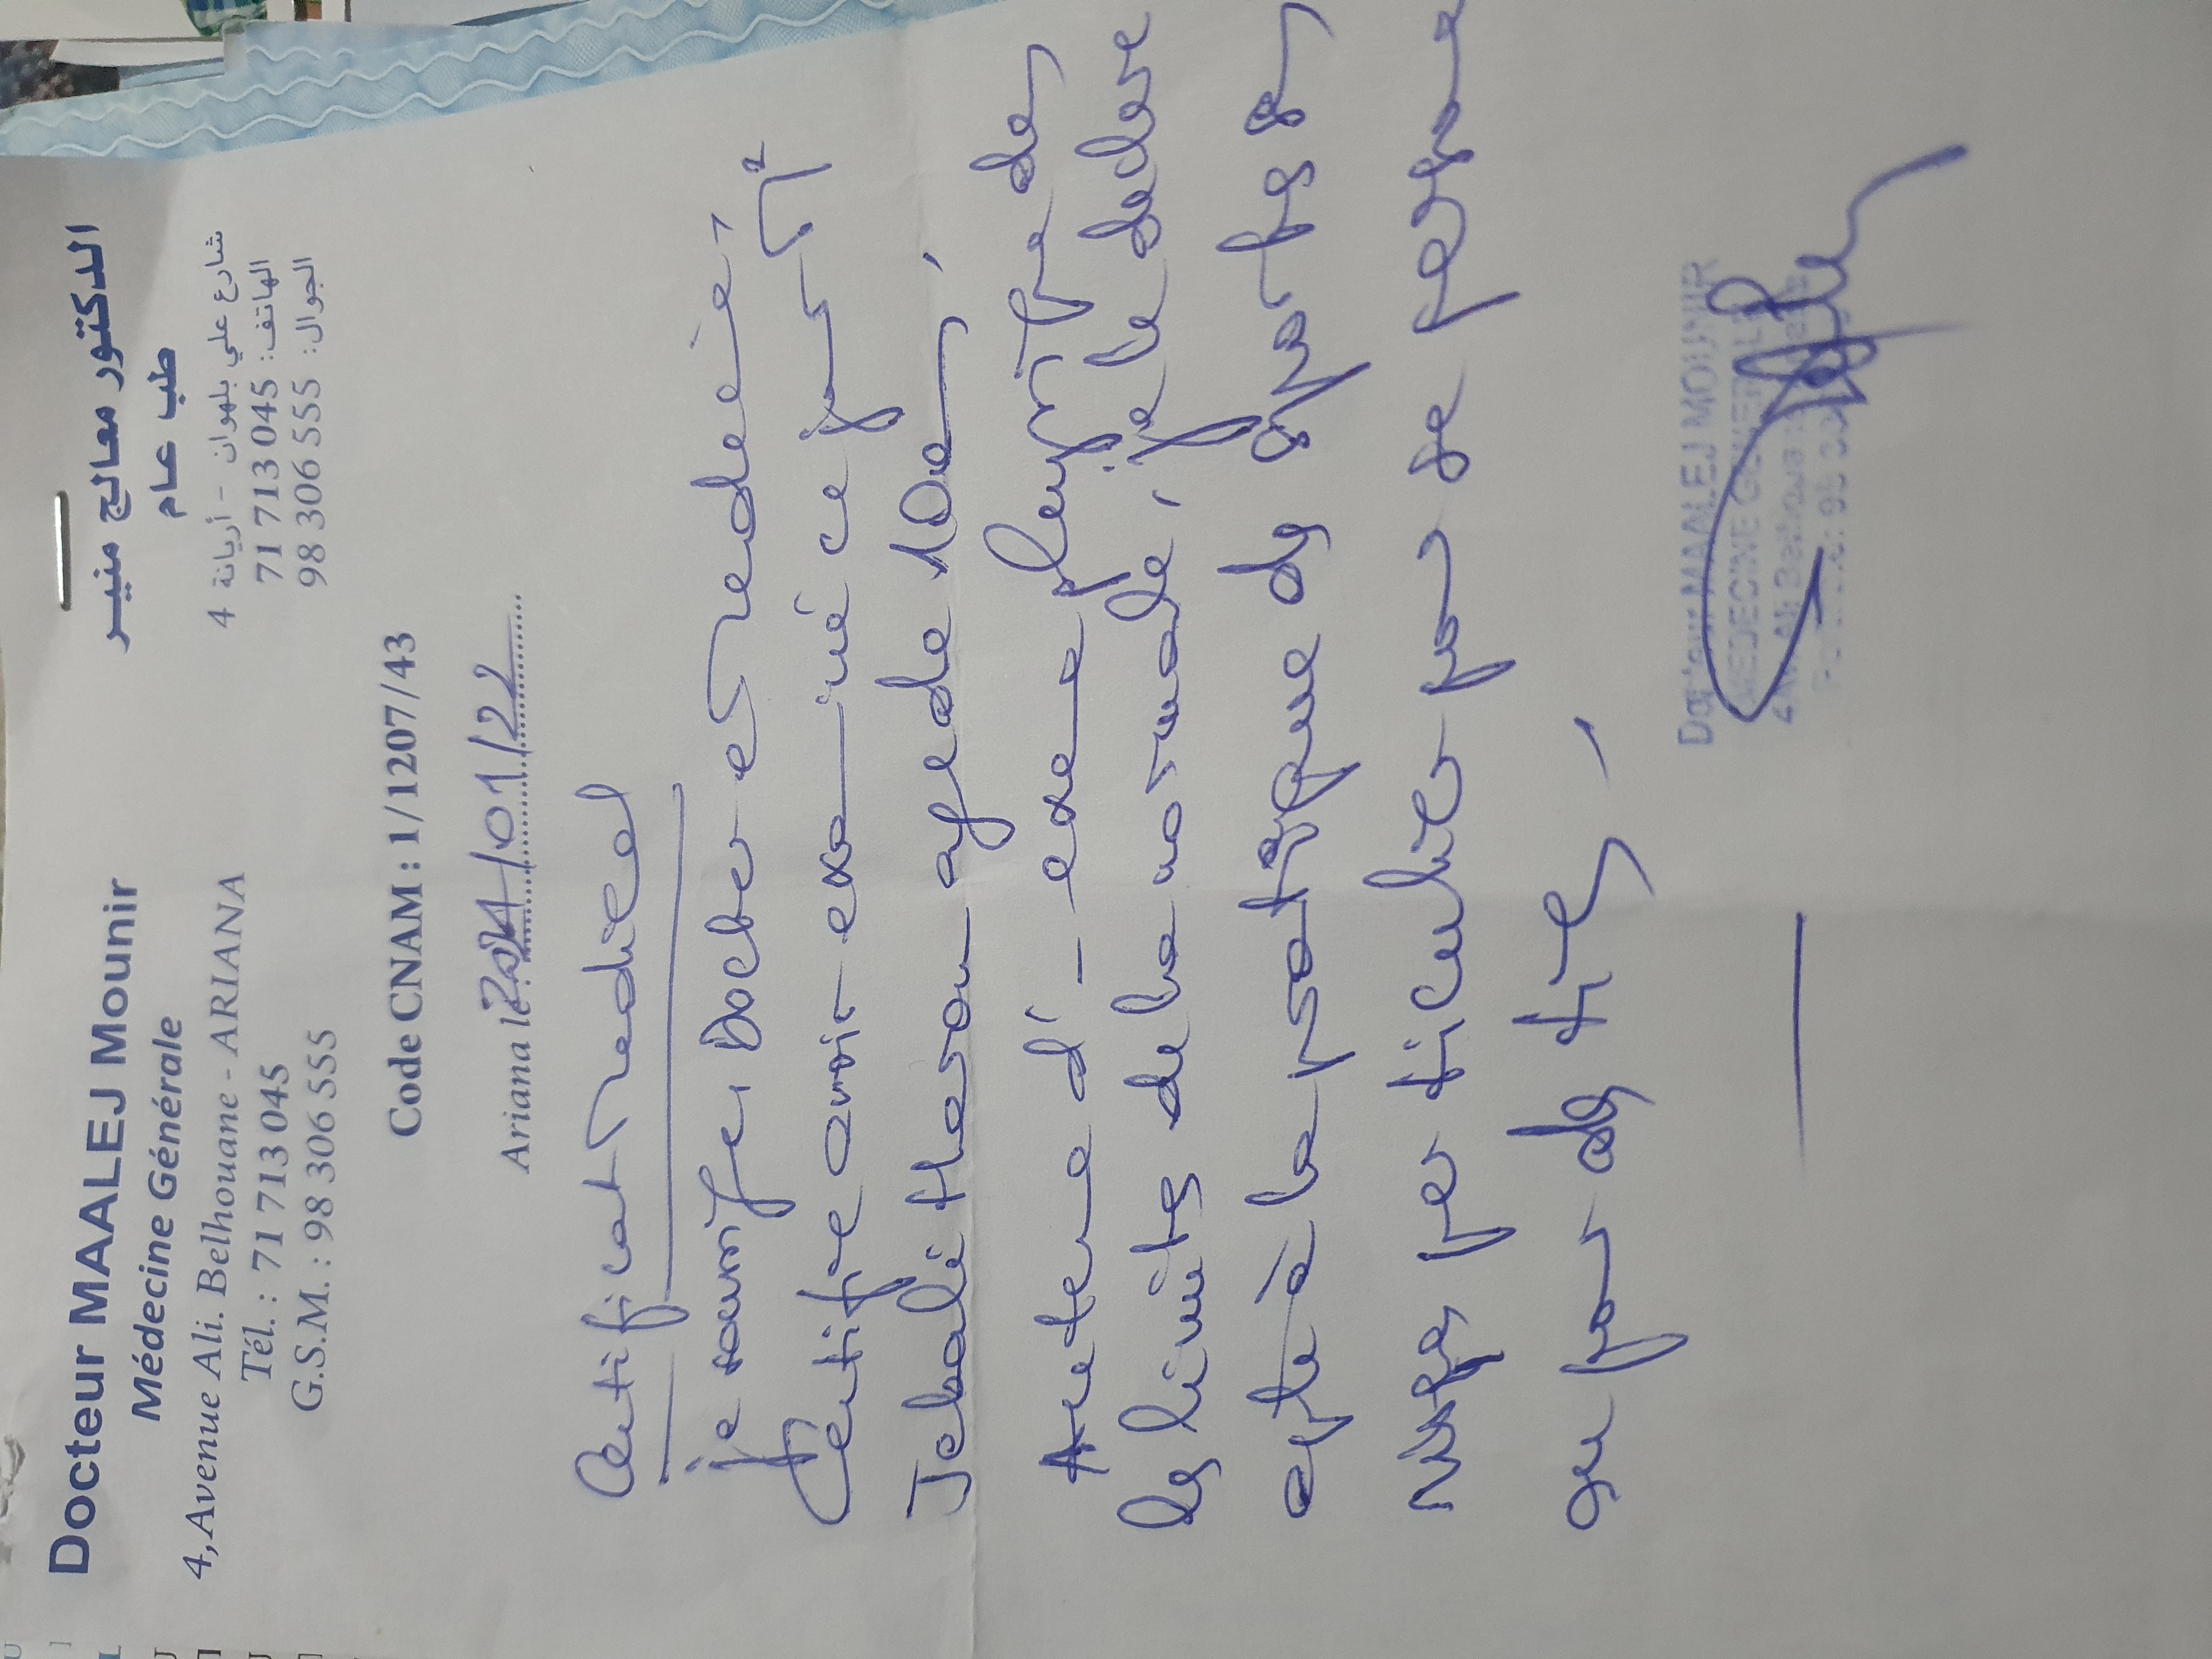 Docteur MAALEJ Mounir
Médecine Générale
4, Avenue Ali. Belhouane - ARIANA
Tél. : 71 713 045
G.S.M. : 98 306 555
الدكتور معالج منير
طب عام
4 شارع علي بلهوان - أريانة
الهاتف: 71 713 045
الجوال: 98 306 555
Code CNAM : 1/1207/43
Ariana le /01/22
Certificat medical
je soussigné, Docteur es medecine,
Certifie avoir examiné ce jour
Jebali Hasan agé de 10 ans,
Au terme d' examen
les limites de la normale, je le declare
apte à la pratique des sports
par ticulier pas de
pas
Docteur MAALEJ MOUNIR
MEDECINE GENERALE
4 Av. Ali Belhouane